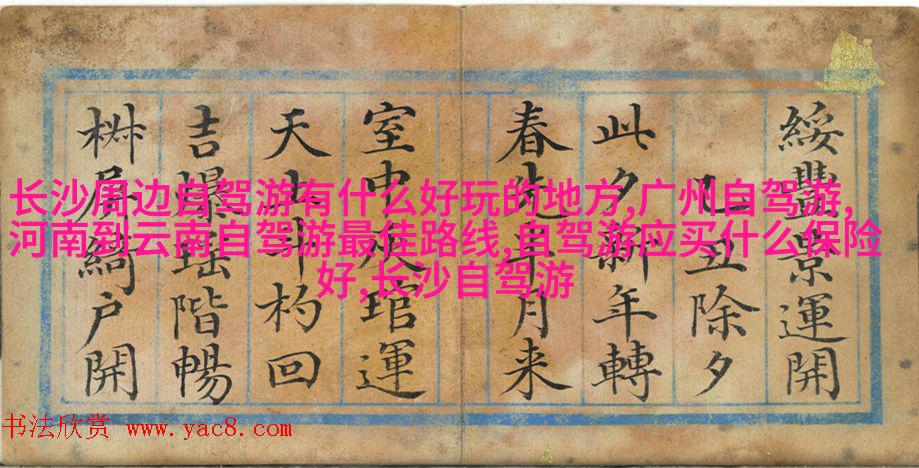 长沙周边自驾游有什么好玩的地方,广州自驾游,
河南到云南自驾游最佳路线,自驾游应买什么保险
好,长沙自驾游
綏豐景運開
丑除夕
此夕新年轉
春先年月来
室中灰琯運
天上斗杓回
吉爆瑶階暢
椒屏綺户開
书法欣赏 www.yac8.com